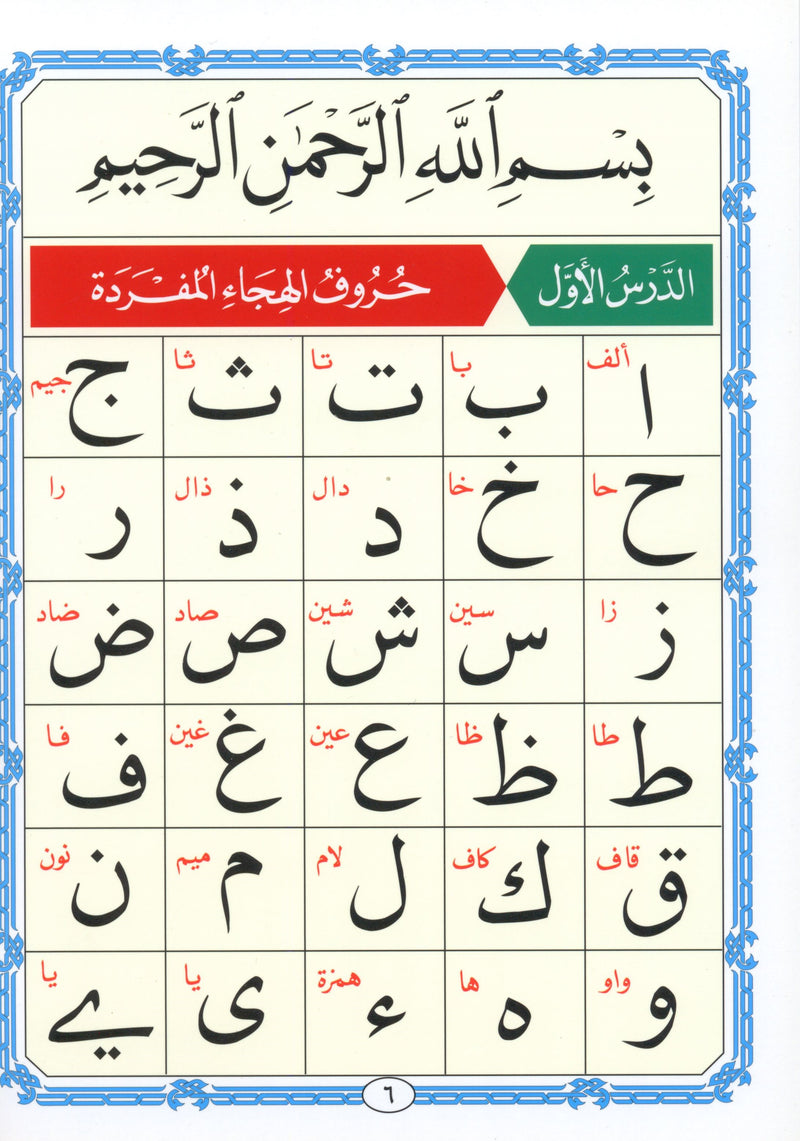 بِسْمِ ٱللَّهِ ٱلرَّحْمَٰنِ ٱلرَّحِيمِ
الدَّرْسُ الْأَوَّل حُرُوفُ الهِجَاءِ المُفْرَدَة
ا ألف ب با ت تا ث ثا ج جيم
ح حا خ خا د دال ذ ذال ر را
ز زا س سين ش شين ص صاد ض ضاد
ط طا ظ ظا ع عين غ غين ف فا
ق قاف ك كاف ل لام م ميم ن نون
و واو ه ها ء همزة ى يا ے يا
٦